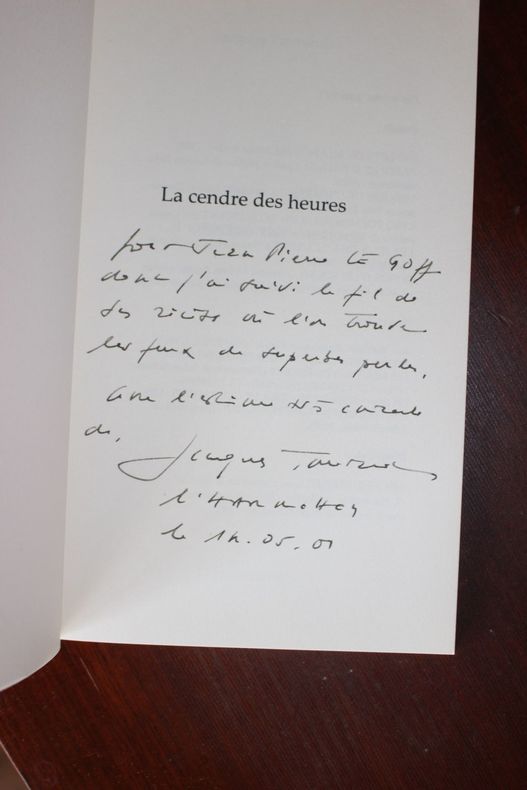 La cendre des heures
pour Jean Pierre LE GOFF
dont j'ai suivi le fil de
ses récits où l'on trouve
les feux de superbes perles,
avec l'estime très cordiale
de,
Jacques
le 14.05.01